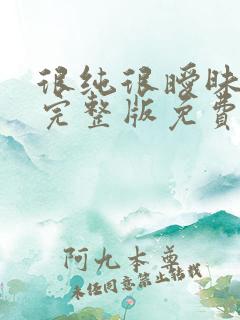 很纯很暧昧
完整版免费
阿九本尊
未经同意禁止转载